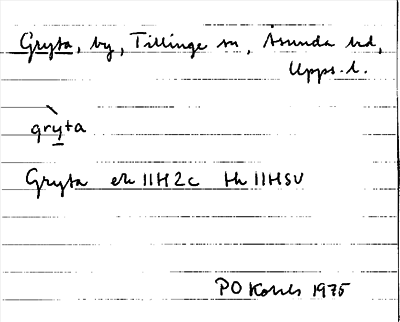 Gryta, by, Tillinge sn, Åsunda hd,
Upps. l.
gryta
Gryta ek 11H2c Hk 11HSV
PO 1975